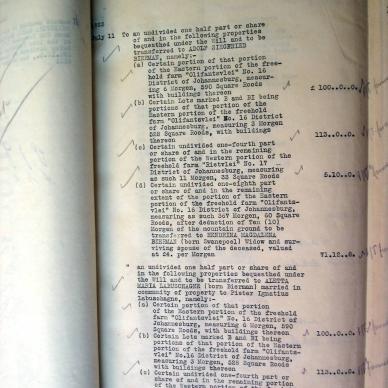 1922
July 11 To an undivided one half part or share
of and in the following properties
bequeathed under the Will and to be
transferred to ADOLF SIEGFRIED
BIERMAN, namely:-
(a) Certain portion of that portion
of the Eastern portion of the free-
hold farm "Olifantsvlei" No. 16
District of Johannesburg, measur-
ing 6 Morgen, 590 Square Roods
with buildings thereon £ 100..0..0.
(b) Certain Lots marked B and BI being
portions of that portion of the
Eastern portion of the freehold
farm "Olifantsvlei" No. 16 District
of Johannesburg, measuring 3 Morgen
528 Square Roods, with buildings
thereon 113..0..0.
(c) Certain undivided one-fourth part
or share of and in the remaining
portion of the Western portion of the
freehold farm "Rietvlei" No. 17
District of Johannesburg, measuring
as such 11 Morgen, 33 Square Roods 5.10..0.
(d) Certain undivided one-eighth part
or share of and in the remaining
extent of the portion of the Eastern
portion of the freehold farm "Olifants-
vlei" No. 16 District of Johannesburg,
measuring as such 367 Morgen, 60 Square
Roods, after deduction of Ten (10)
Morgen of the mountain ground to be
transferred to HENDRINA MAGDALENA
BIERMAN (born Swanepoel) Widow and sur-
viving spouse of the deceased, valued
at £4. per Morgen
" an undivided one half part or share of and
in the following properties bequeathed under
the Will and to be transferred to ALETTA
MARIA LABUSCHAGNE (born Bierman) married in
community of property to Pieter Ignatius
Labuschagne, namely:-
(a) Certain portion of that portion
of the Eastern portion of the freehold
farm "Olifantsvlei" No. 16 District of
Johannesburg, measuring 6 Morgen, 590
Square Roods, with buildings thereon 100..0..0.
(b) Certain Lots marked B and BI being
portions of that portion of the Eastern
portion of the freehold farm "Olifants-
vlei" No.16 District of Johannesburg,
measuring 3 Morgen, 528 Square Roods
with buildings thereon 113..0..0.
(c) Certain undivided one-fourth part or
share of and in the remaining portion